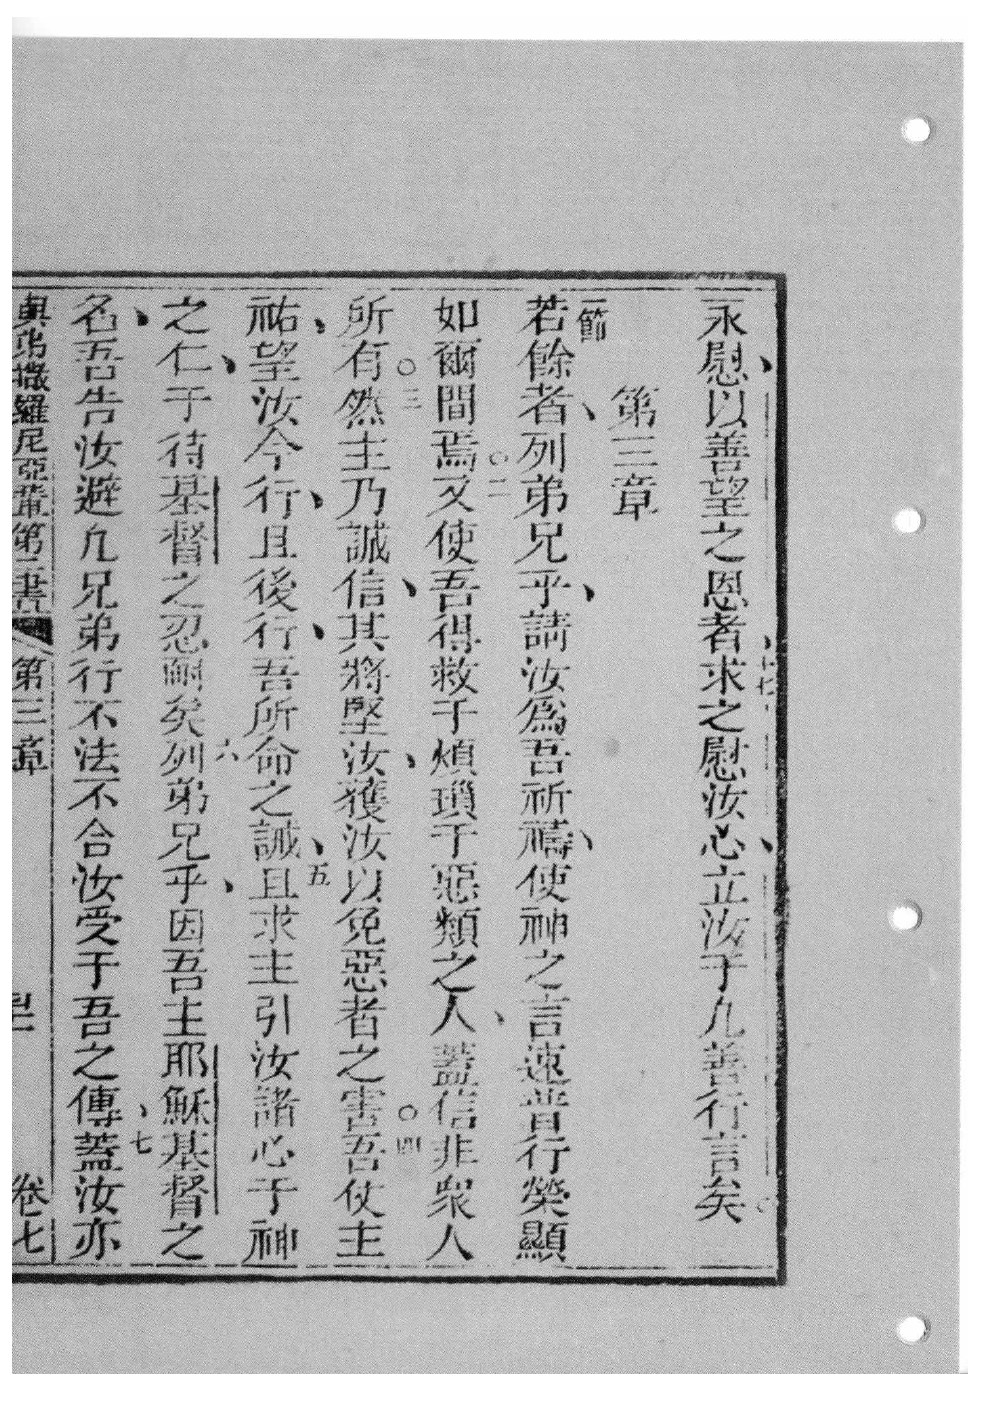 永慰以善望之恩者十七求之慰汝心立汝于凢善行言矣
第三章
一節若餘者列弟兄乎請汝爲吾祈禱使神之言速普行榮顯
如爾間焉○二又使吾得救于煩瑣于惡類之人蓋信非衆人
所有○三然主乃誠信其將堅汝獲汝以免惡者之害○四吾仗主
祐望汝今行且後行吾所命之誡五且求主引汝諸心于神
之仁于待基督之忍耐矣六列弟兄乎因吾主耶穌基督之
名吾告汝避凢兄弟行不法不合汝受于吾之傳七蓋汝亦
與弟撒羅尼亞輩第二書 第三章 卷七